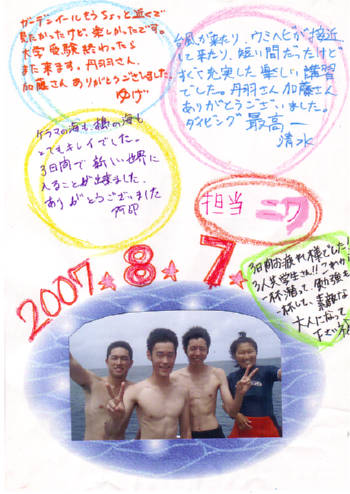 ガーデンイールもうちょっと近くで
見たかったけど、楽しかったです。
大学受験終わったら
また来ます。丹羽さん、
加藤さんありがとうございました。
ゆげ
台風が来たり、ウミヘビが接近
して来たり、短い間だったけど
すごく充実した楽しい講習
でした。丹羽さん加藤さん
ありがとうございました。
ダイビング最高ー
清水
ケラマの海も、橋の海も
とてもキレイでした。
3日間で新しい世界に
入ることが出来ました。
ありがとうございました
担当 ニワ
2007.8.7
3日間お疲れ様でした!
3人共学生さん!!これから
一杯潜って、勉強も
一杯して、素敵な
大人になって
下さいネ